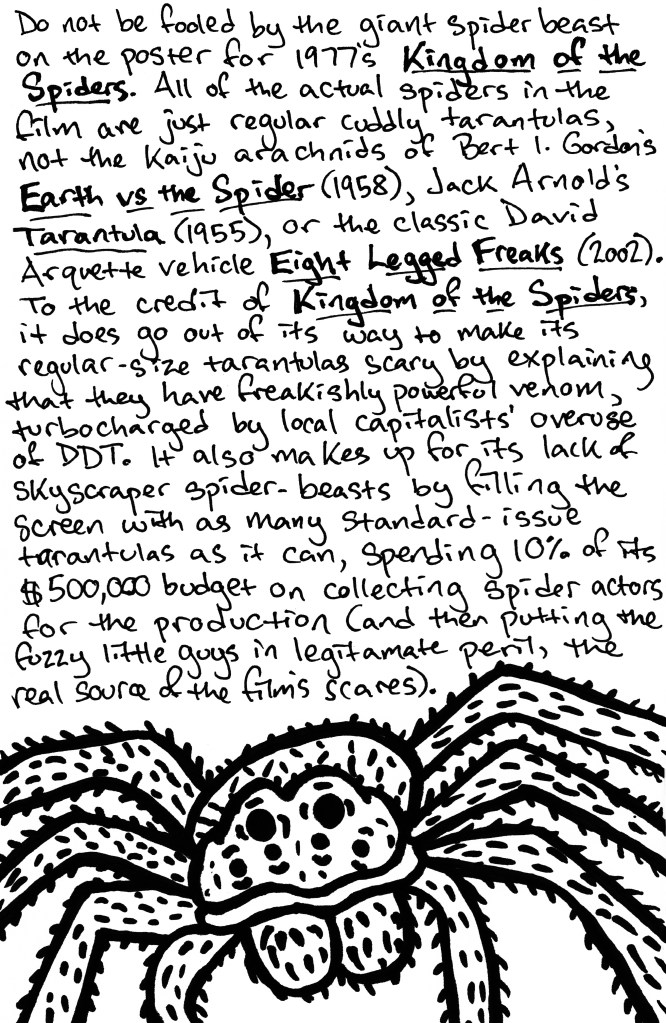 Do not be fooled by the giant spider beast
on the poster for 1977's Kingdom of the
Spiders. All of the actual spiders in the
film are just regular cuddly tarantulas,
not the Kaiju arachnids of Bert I. Gordon's
Earth vs the Spider (1958), Jack Arnold's
Tarantula (1955), or the classic David
Arquette vehicle Eight Legged Freaks (2002).
To the credit of Kingdom of the Spiders,
it does go out of its way to make its
regular-size tarantulas scary by explaining
that they have freakishly powerful venom,
turbocharged by local capitalists' overuse
of DDT. It also makes up for its lack of
skyscraper spider-beasts by filling the
screen with as many standard-issue
tarantulas as it can, spending 10% of its
$500,000 budget on collecting spider actors
for the production (and then putting the
fuzzy little guys in legitamate peril, the
real source of the film's scares).